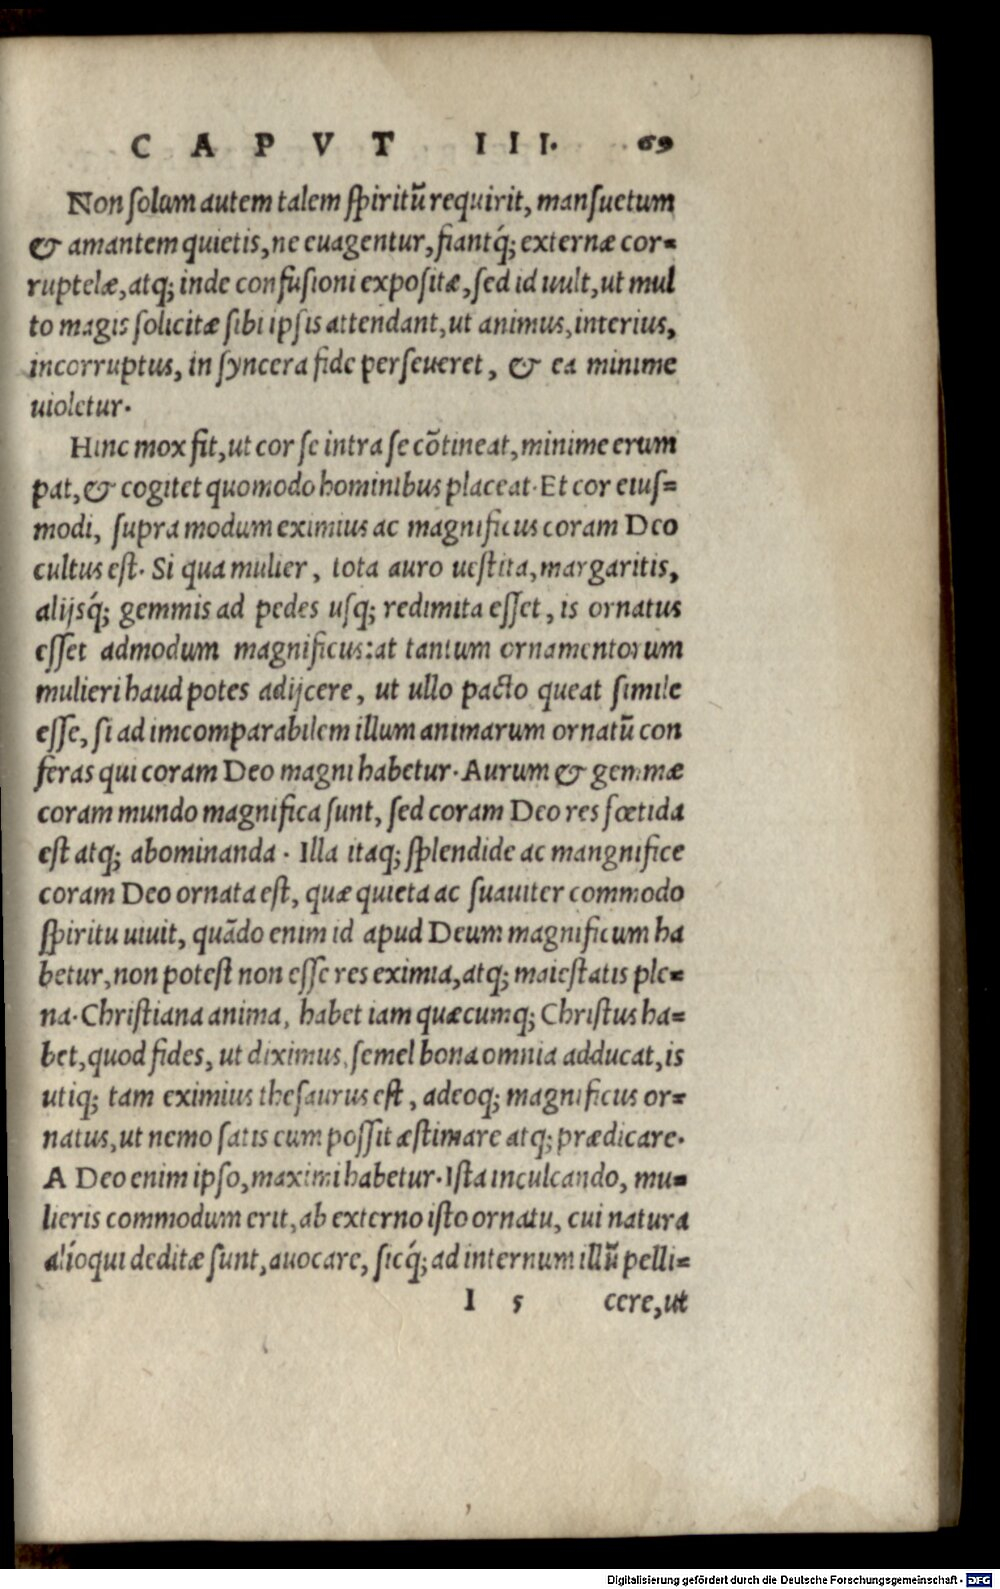 CAPVT III. 69
Non ſolum autem talem ſpiritũ requirit, manſuetum
& amantem quietis, ne euagentur, fiantq́; externæ cor=
ruptelæ, atq; inde confuſioni expoſitæ, ſed id uult, ut mul
to magis ſolicitæ ſibi ipſis attendant, ut animus, interius,
incorruptus, in ſyncera fide perſeueret, & ea minime
uioletur.
Hinc mox fit, ut cor ſe intra ſe cõtineat, minime erum
pat, & cogitet quomodo hominibus placeat. Et cor eiuſ=
modi, ſupra modum eximius ac magnificus coram Deo
cultus eſt. Si qua mulier, tota auro ueſtita, margaritis,
alijsq́; gemmis ad pedes uſq; redimita eſſet, is ornatus
eſſet admodum magnificus: at tantum ornamentorum
mulieri haud potes adijcere, ut ullo pacto queat ſimile
eſſe, ſi ad imcomparabilem illum animarum ornatũ con
feras qui coram Deo magni habetur. Aurum & gemmæ
coram mundo magnifica ſunt, ſed coram Deo res fœtida
eſt atq; abominanda. Illa itaq; ſplendide ac mangnifice
coram Deo ornata eſt, quæ quieta ac ſuauiter commodo
ſpiritu uiuit, quãdo enim id apud Deum magnificum ha
betur, non poteſt non eſſe res eximia, atq; maieſtatis ple=
na. Chriſtiana anima, habet iam quæcumq; Chriſtus ha=
bet, quod fides, ut diximus, ſemel bona omnia adducat, is
utiq; tam eximius theſaurus eſt, adeoq; magnificus or=
natus, ut nemo ſatis cum poſſit æſtimare atq; prædicare.
A Deo enim ipſo, maximi habetur. Iſta inculcando, mu=
lieris commodum erit, ab externo iſto ornatu, cui natura
alíoqui deditæ ſunt, auocare, ſicq́; ad internum illũ pelli=
I 5 cere, ut
Digitalisierung gefördert durch die Deutsche Forschungsgemeinschaft - DFG